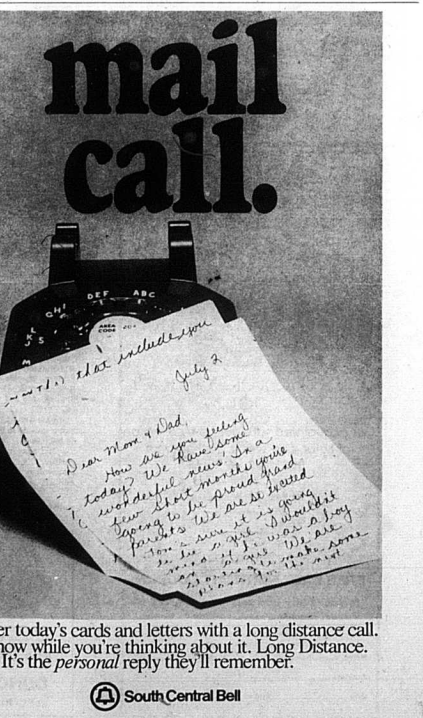 mail
call.
DEF ABC
GHI
AREA
CODE
M
that include you
July 2
Dear Mom & Dad,
How are you feeling
today? We have some
wonderful news. In a
few short months you're
going to be proud grand
parents. We are so excited
Tom's sure it is going
to be a girl. I wouldn't
mind if he was a boy
a girl. We are
make some
plans for the next
er today's cards and letters with a long distance call.
now while you're thinking about it. Long Distance.
It's the personal reply they'll remember.
South Central Bell